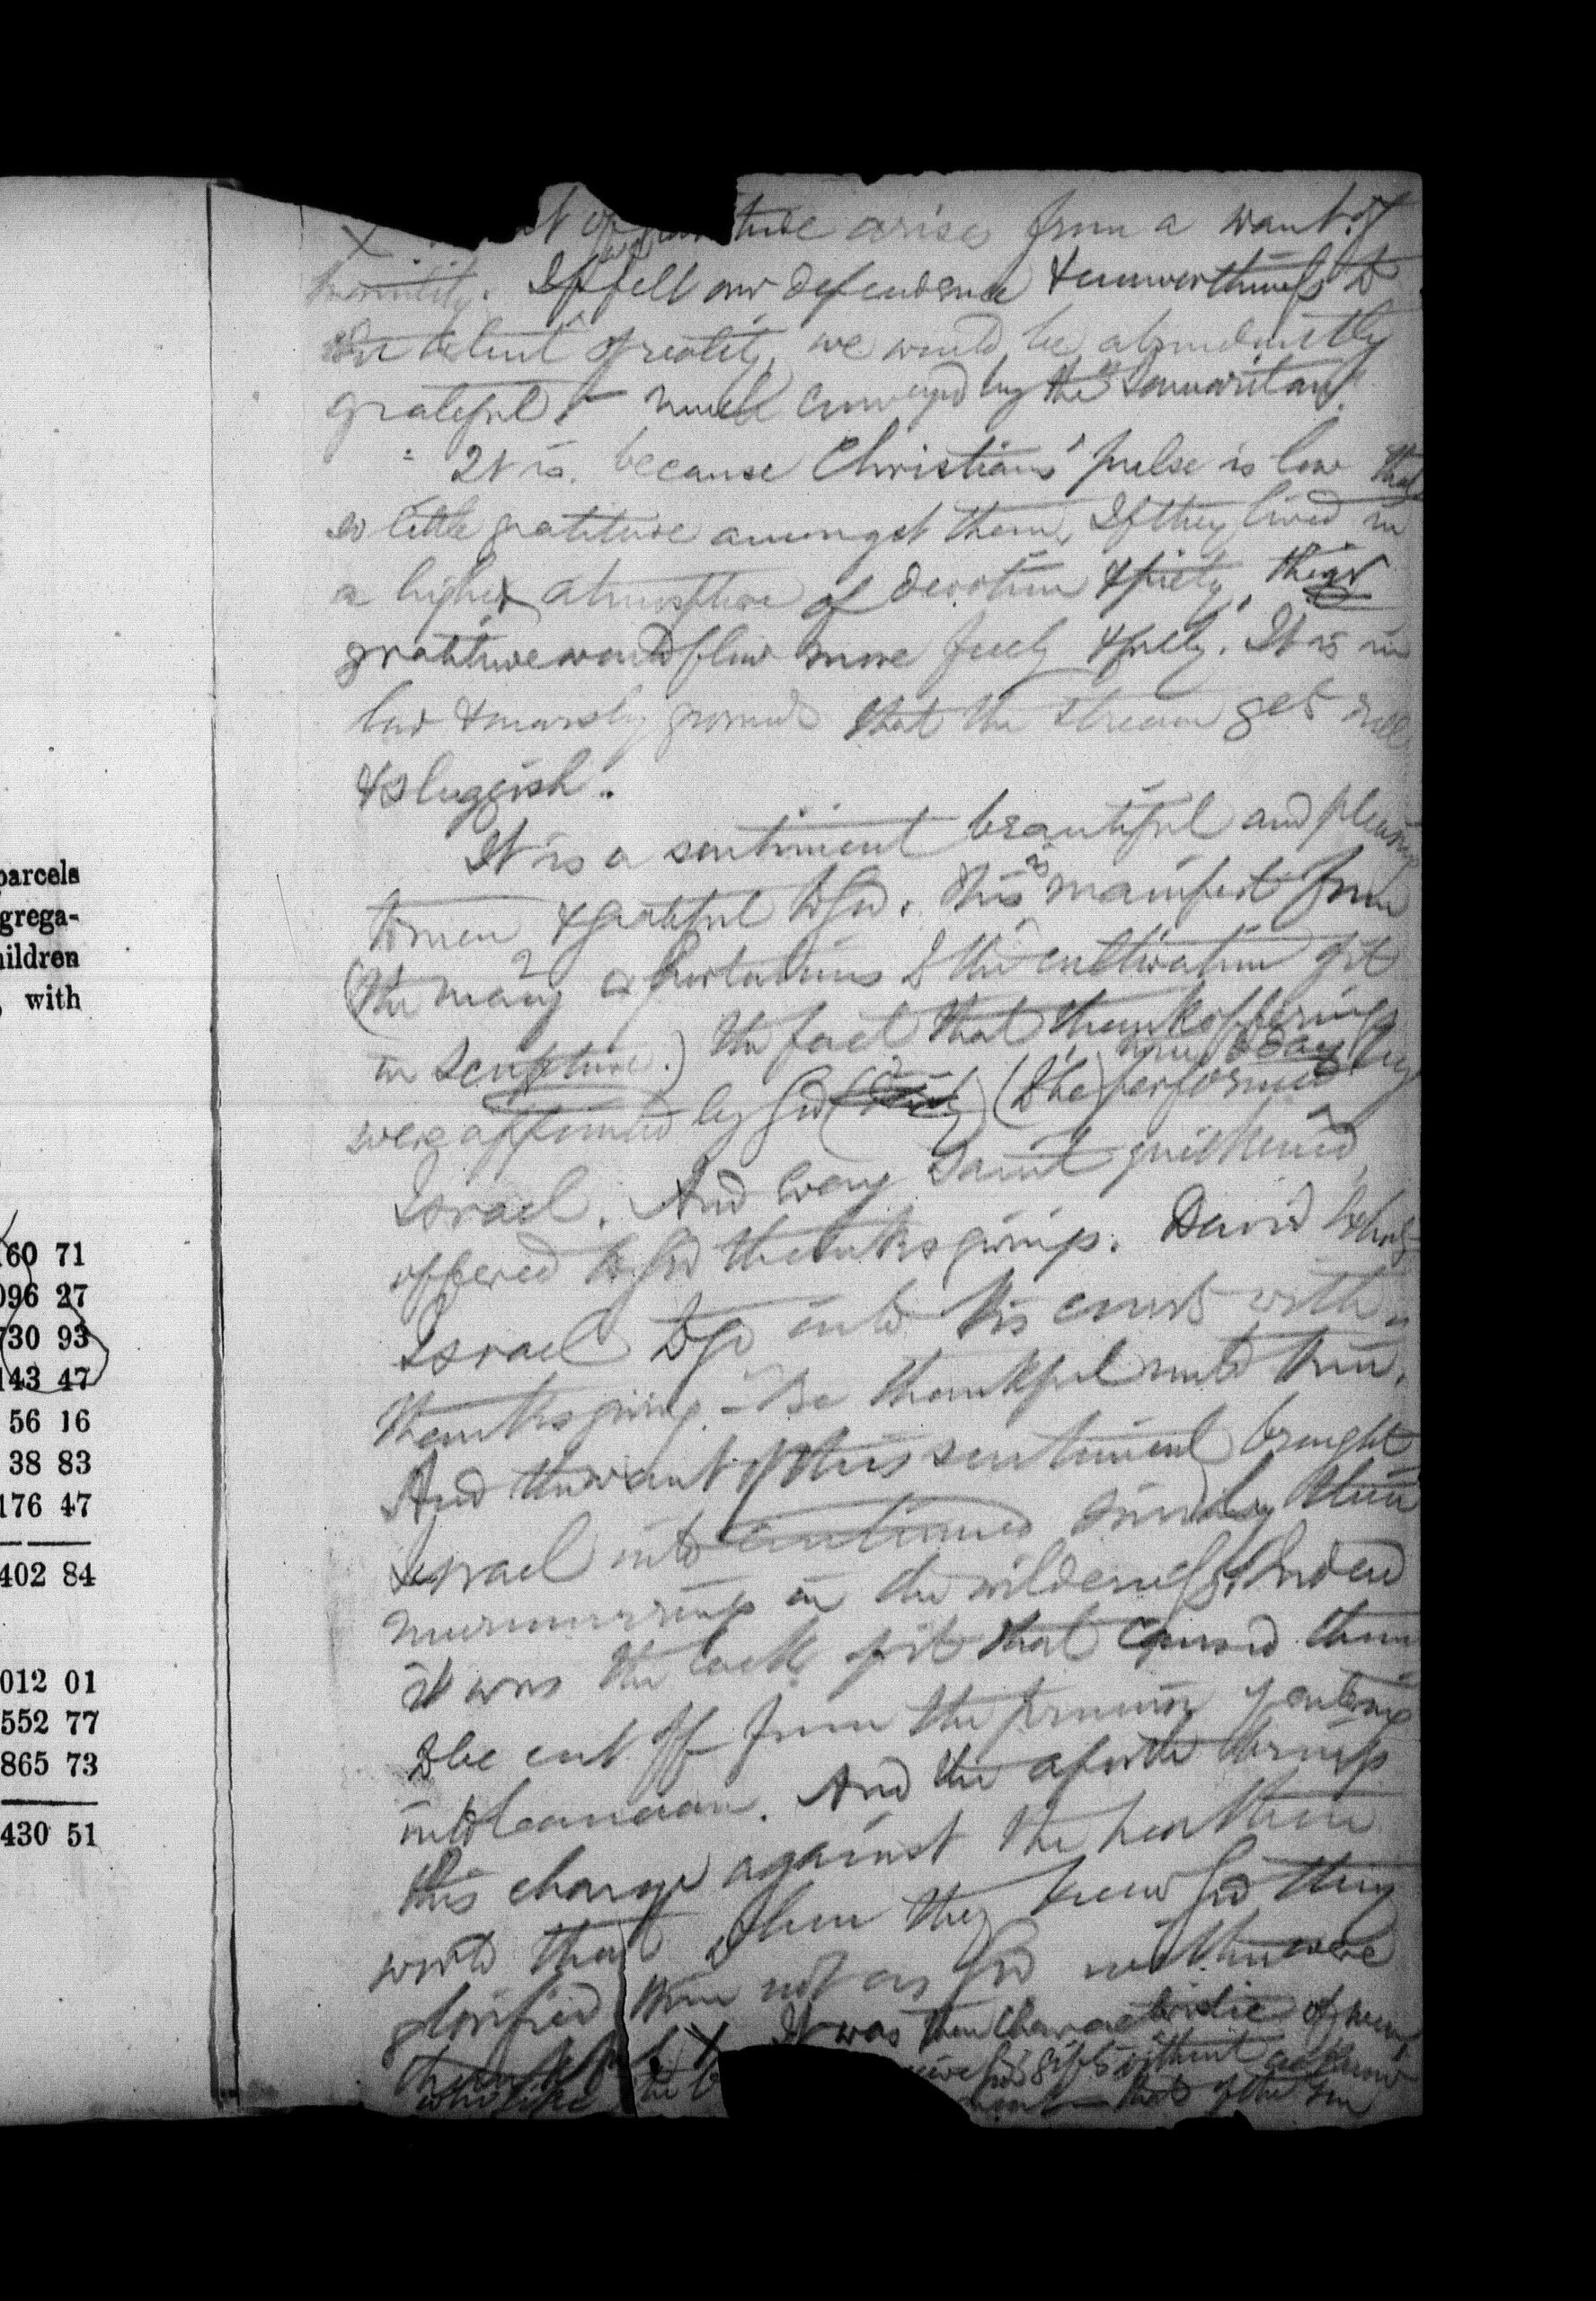 parcels
grega-
hildren
, with
160 71
096 27
730 93
143 47
56 16
38 83
176 47
402 84
012 01
552 77
865 73
430 51
arise from a want of
humility. If we felt our dependence & unworthiness to
the extent of reality, we would be abundantly
grateful. much by the Samaritan.
It is because Christians' pulse is low that
so little gratitude amongst them. If they lived in
a higher atmosphere of devotion & piety, their
gratitude would flow more freely & fully. It is in
low & marshy grounds that the stream gets dull
& sluggish.
It is a sentiment beautiful and pleasing
to men & grateful to God. This is manifest from
(the many exhortations to the cultivation of it
in Scripture.) the fact that thank offerings
were appointed by God (to be) performed by
Israel. And every Saint quickened,
offered to God thanksgivings. David exhorts
Israel to go into his courts with
thanksgiving - Be thankful unto him.
And the want of this sentiment brought
Israel into continued sins by their
murmurings in the wilderness. Indeed
it was the lack of it that caused them
to be cut off from the promise of entering
into Canaan. And the apostle brings
this charge against the heathen
world that when they knew God they
glorified him not as God neither were
thankful. It was the characteristic of men,
who like the gifts without
that of the